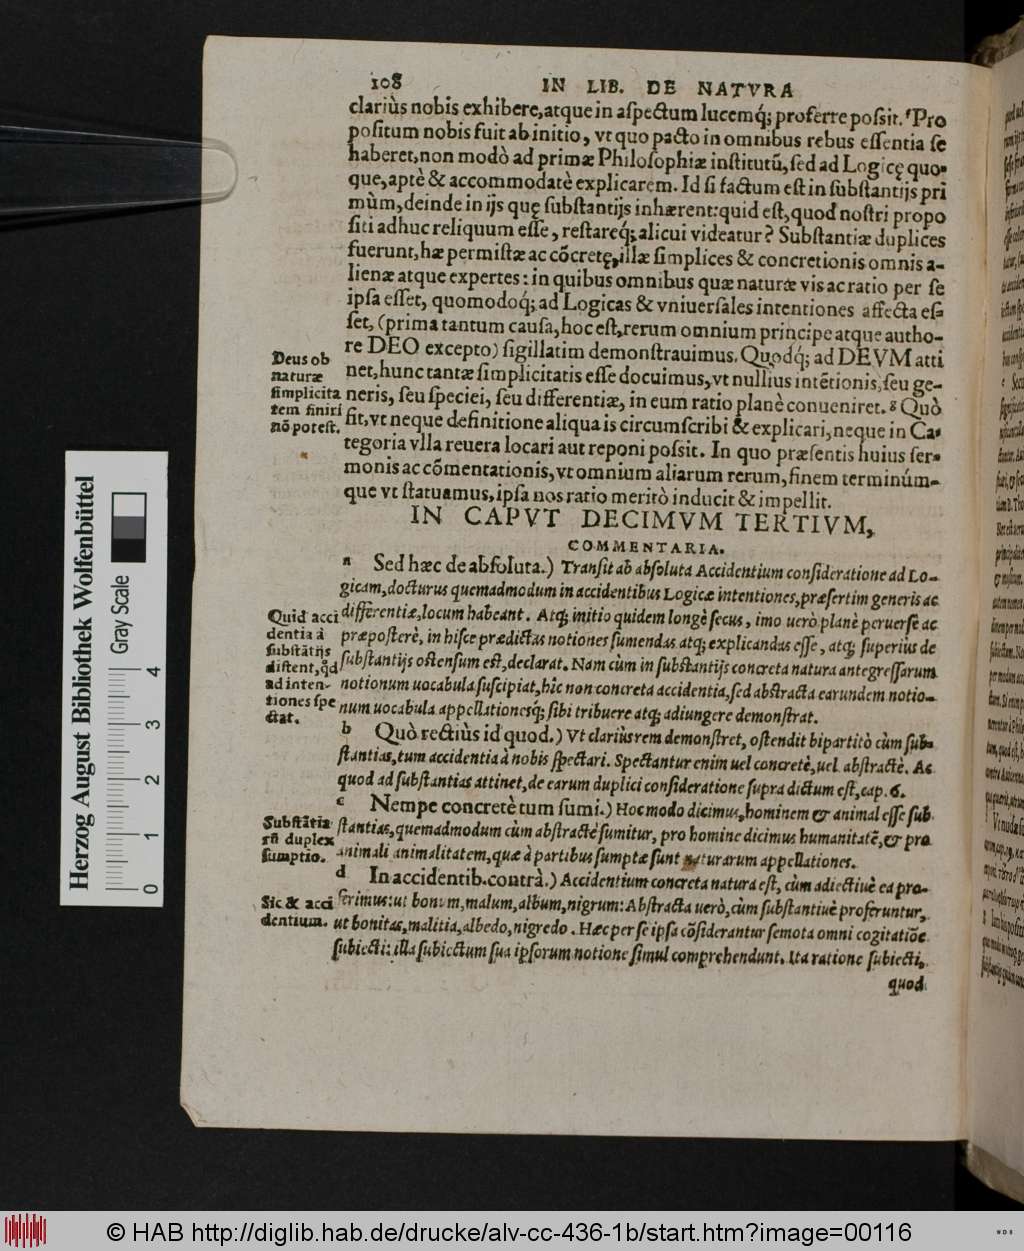 108 IN LIB. DE NATVRA
clariùs nobis exhibere, atque in aſpectum lucemq́; proferre poſsit. ᶠPro
poſitum nobis fuit ab initio, vt quo pacto in omnibus rebus eſſentia ſe
haberet, non modò ad primæ Philoſophiæ inſtitutũ, ſed ad Logicę quo-
que, aptè & accommodatè explicarem. Id ſi factum eſt in ſubſtantijs pri
mùm, deinde in ijs quę ſubſtantijs inhærent: quid eſt, quod noſtri propo
ſiti adhuc reliquum eſſe, reſtareq́; alicui videatur? Subſtantiæ duplices
fuerunt, hæ permiſtæ ac cõcretę, illæ ſimplices & concretionis omnis a-
lienæ atque expertes: in quibus omnibus quæ naturæ vis ac ratio per ſe
ipſa eſſet, quomodoq́; ad Logicas & vniuerſales intentiones affecta eſ-
ſet, (prima tantum cauſa, hoc eſt, rerum omnium principe atque autho-
re DEO excepto) ſigillatim demonſtrauimus. Quodq́; ad DEVM atti
net, hunc tantæ ſimplicitatis eſſe docuimus, vt nullius intẽtionis, ſeu ge-
neris, ſeu ſpeciei, ſeu differentiæ, in eum ratio planè conueniret. ᵍ Quò
fit, vt neque definitione aliqua is circumſcribi & explicari, neque in Ca-
tegoria vlla reuera locari aut reponi poſsit. In quo præſentis huius ſer-
monis ac cõmentationis, vt omnium aliarum rerum, finem terminúm-
que vt ſtatuamus, ipſa nos ratio meritò inducit & impellit.
Deus ob
naturæ
ſimplicita
tem finiri
nõ poteſt.
IN CAPVT DECIMVM TERTIVM,
COMMENTARIA.
a Sed hæc de abſoluta.) Tranſit ab abſoluta Accidentium conſideratione ad Lo-
gicam, docturus quemadmodum in accidentibus Logicæ intentiones, præſertim generis ac
differentiæ, locum habeant. Atq; initio quidem longè ſecus, imo uerò planè peruerſè ac
præpoſterè, in hiſce prædictas notiones ſumendas atq; explicandas eſſe, atq; ſuperiùs de
ſubſtantijs oſtenſum eſt, declarat. Nam cùm in ſubſtantijs concreta natura antegreſſarum
notionum uocabula ſuſcipiat, hîc non concreta accidentia, ſed abſtracta earundem notio-
num uocabula appellationesq́; ſibi tribuere atq; adiungere demonſtrat.
Quid acci
dentia à
ſubſtãtijs
diſtent, qd
ad inten-
tiones ſpe
ctat.
b Quò rectiùs id quod.) Vt clariùs rem demonſtret, oſtendit bipartitò cùm ſub-
ſtantias, tum accidentia à nobis ſpectari. Spectantur enim uel concretè, uel abſtractè. Ac
quod ad ſubſtantias attinet, de earum duplici conſideratione ſupra dictum eſt, cap. 6.
c Nempe concretè tum ſumi.) Hoc modo dicimus, hominem & animal eſſe ſub-
ſtantias, quemadmodum cùm abſtractè ſumitur, pro homine dicimus humanitatẽ, & pro
animali animalitatem, quæ à partibus ſumptæ ſunt naturarum appellationes.
Subſtãtia
rũ duplex
ſumptio.
d In accidentib. contrà.) Accidentium concreta natura eſt, cùm adiectiuè ea pro-
ferimus: ut bonum, malum, album, nigrum: Abſtracta uerò, cùm ſubſtantiuè proferuntur,
ut bonitas, malitia, albedo, nigredo. Hæc per ſe ipſa cõſiderantur ſemota omni cogitatiõe
ſubiecti: illa ſubiectum ſua ipſorum notione ſimul comprehendunt. Ita ratione ſubiecti,
Sic & acci
dentium.
quod
Herzog August Bibliothek Wolfenbüttel
Gray Scale
0 1 2 3 4
© HAB http://diglib.hab.de/drucke/alv-cc-436-1b/start.htm?image=00116